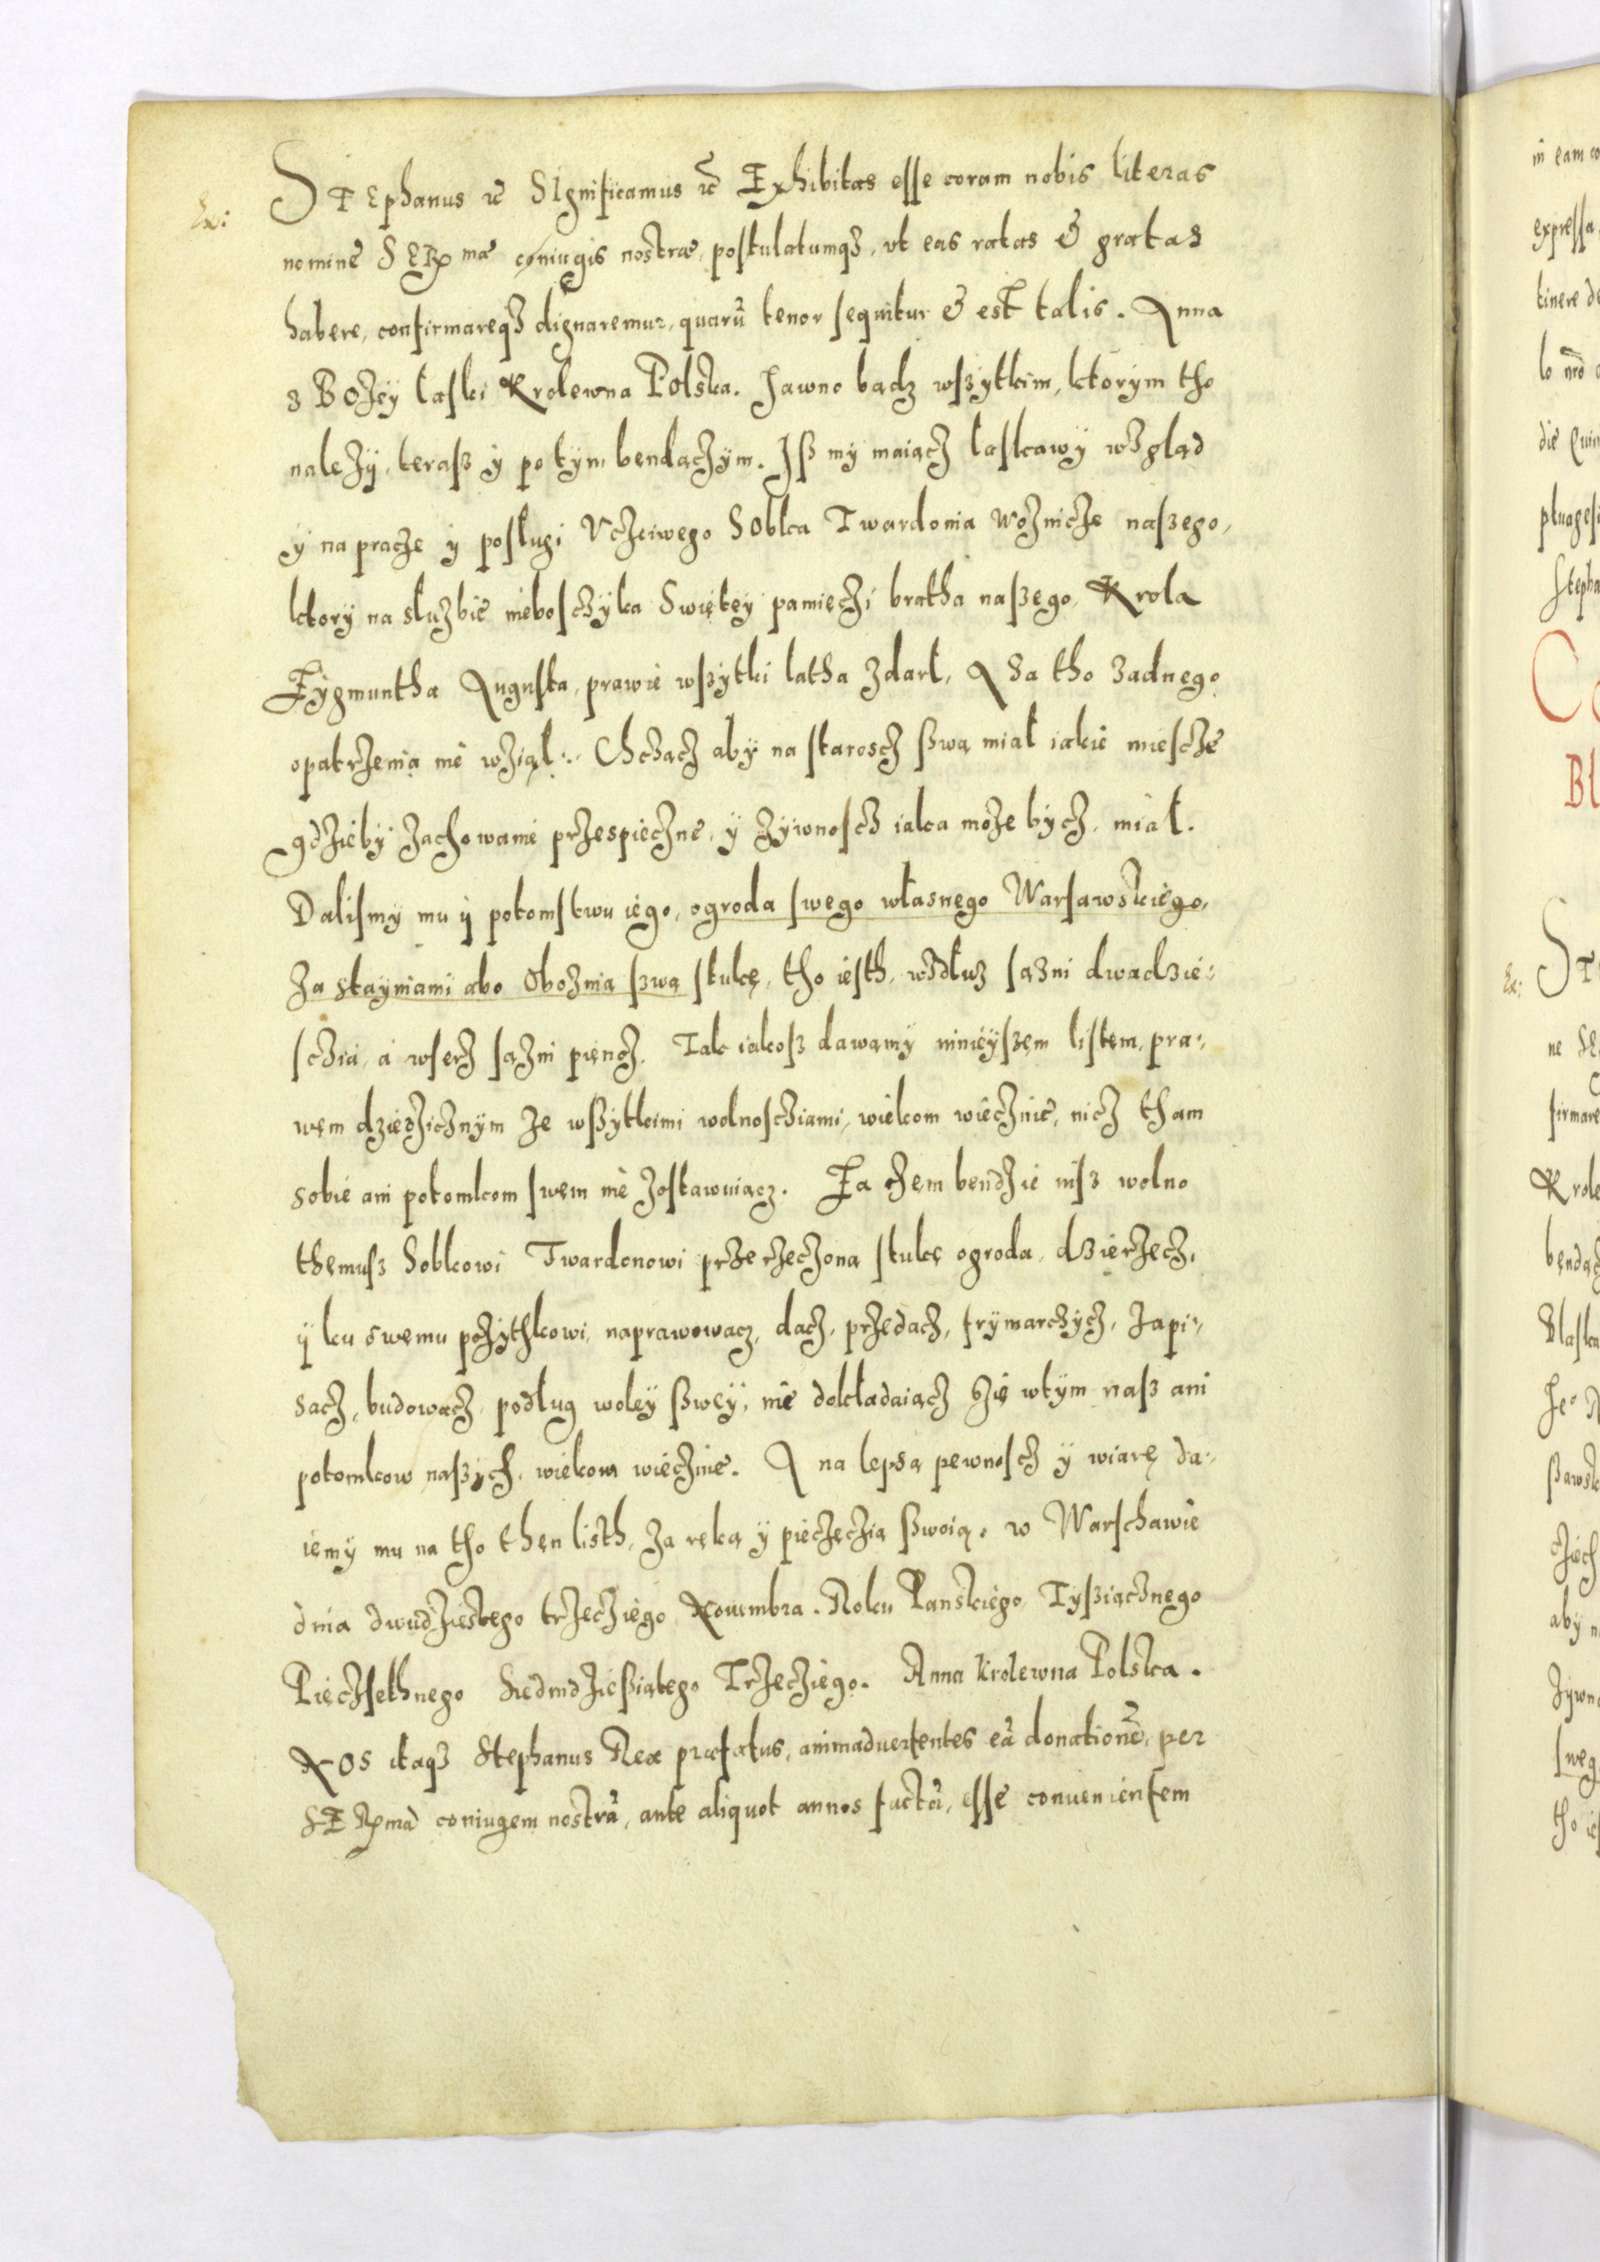 Ex:
STEphanus etc SIgnificamus etc Exhibitas esse coram nobis literas
nomine SERmæ coniugis nostræ, postulatumqȝ, vt eas ratas & gratas
habere, confirmareqȝ dignaremur, quarũ tenor sequitur & est talis. Anna
z BOżey łaski Krolewna Polska. Jawno bądz wszytkim, ktorym tho
należy, teraß y po tym bendączym. Jß my maiącz łaskawy wzgląd
y na pracze y posługi Vcżciwego SObka Twardonia Woźnicże naszego,
ktory na służbie nieboscżyka Swiętey pamięczi bratha naszego, Krola
Zygmuntha Augusta, prawie wszytki latha zdarł, A za tho żadnego
opatrżenia nie wżiął: Chcząćz aby na starosćz ßwą miał iakie miescże
gdżieby zachowanie prżespieczne, y żywnoscz iaka może bycz, miał.
Dalismy mu y potomstwu iego, ogroda swego własnego Warsawskiego,
Za stayniami abo Oboźnią szwą stukę, tho iesth, wzdłuz sązni dwadzie-
sczia, a wserz sążni piencz. Tak iakoß dawamy ninieyszem listem, pra-
wem dziedżicznym ze wßytkimi wolnosciami, wiekom wiecznie, nicz tham
sobie ani potomkom swem nie zostawuiącz. Za czem bendzie iusz wolno
themusz Sobkowi Twardonowi prżerżeczoną stukę ogroda, dzierżecz,
y ku swemu pożythkowi, naprawowacz, dacz, przedacz, frymarczycz, zapi-
sacz, budowacz, podług woley ßwey, nie dokładaiącz żię wtym naß ani
potomkow naßych, wiekom wiecznie. A na lepsą pewnoscz y wiarę da-
iemy mu na tho then listh, za ręką y pieczęczią ßwoią. w Warschawie
dnia dwudziestego trzecziego Nouembra. Roku Panskiego Tyßiącznego
Pieczsethnego Siedmdzießiątego Trzecziego. Anna Krolewna Polska.
NOS itaqȝ Stephanus Rex præfatus, animaduertentes eã donationẽ, per
SERmã coniugem nostrã, ante aliquot annos factã, esse conuenientem